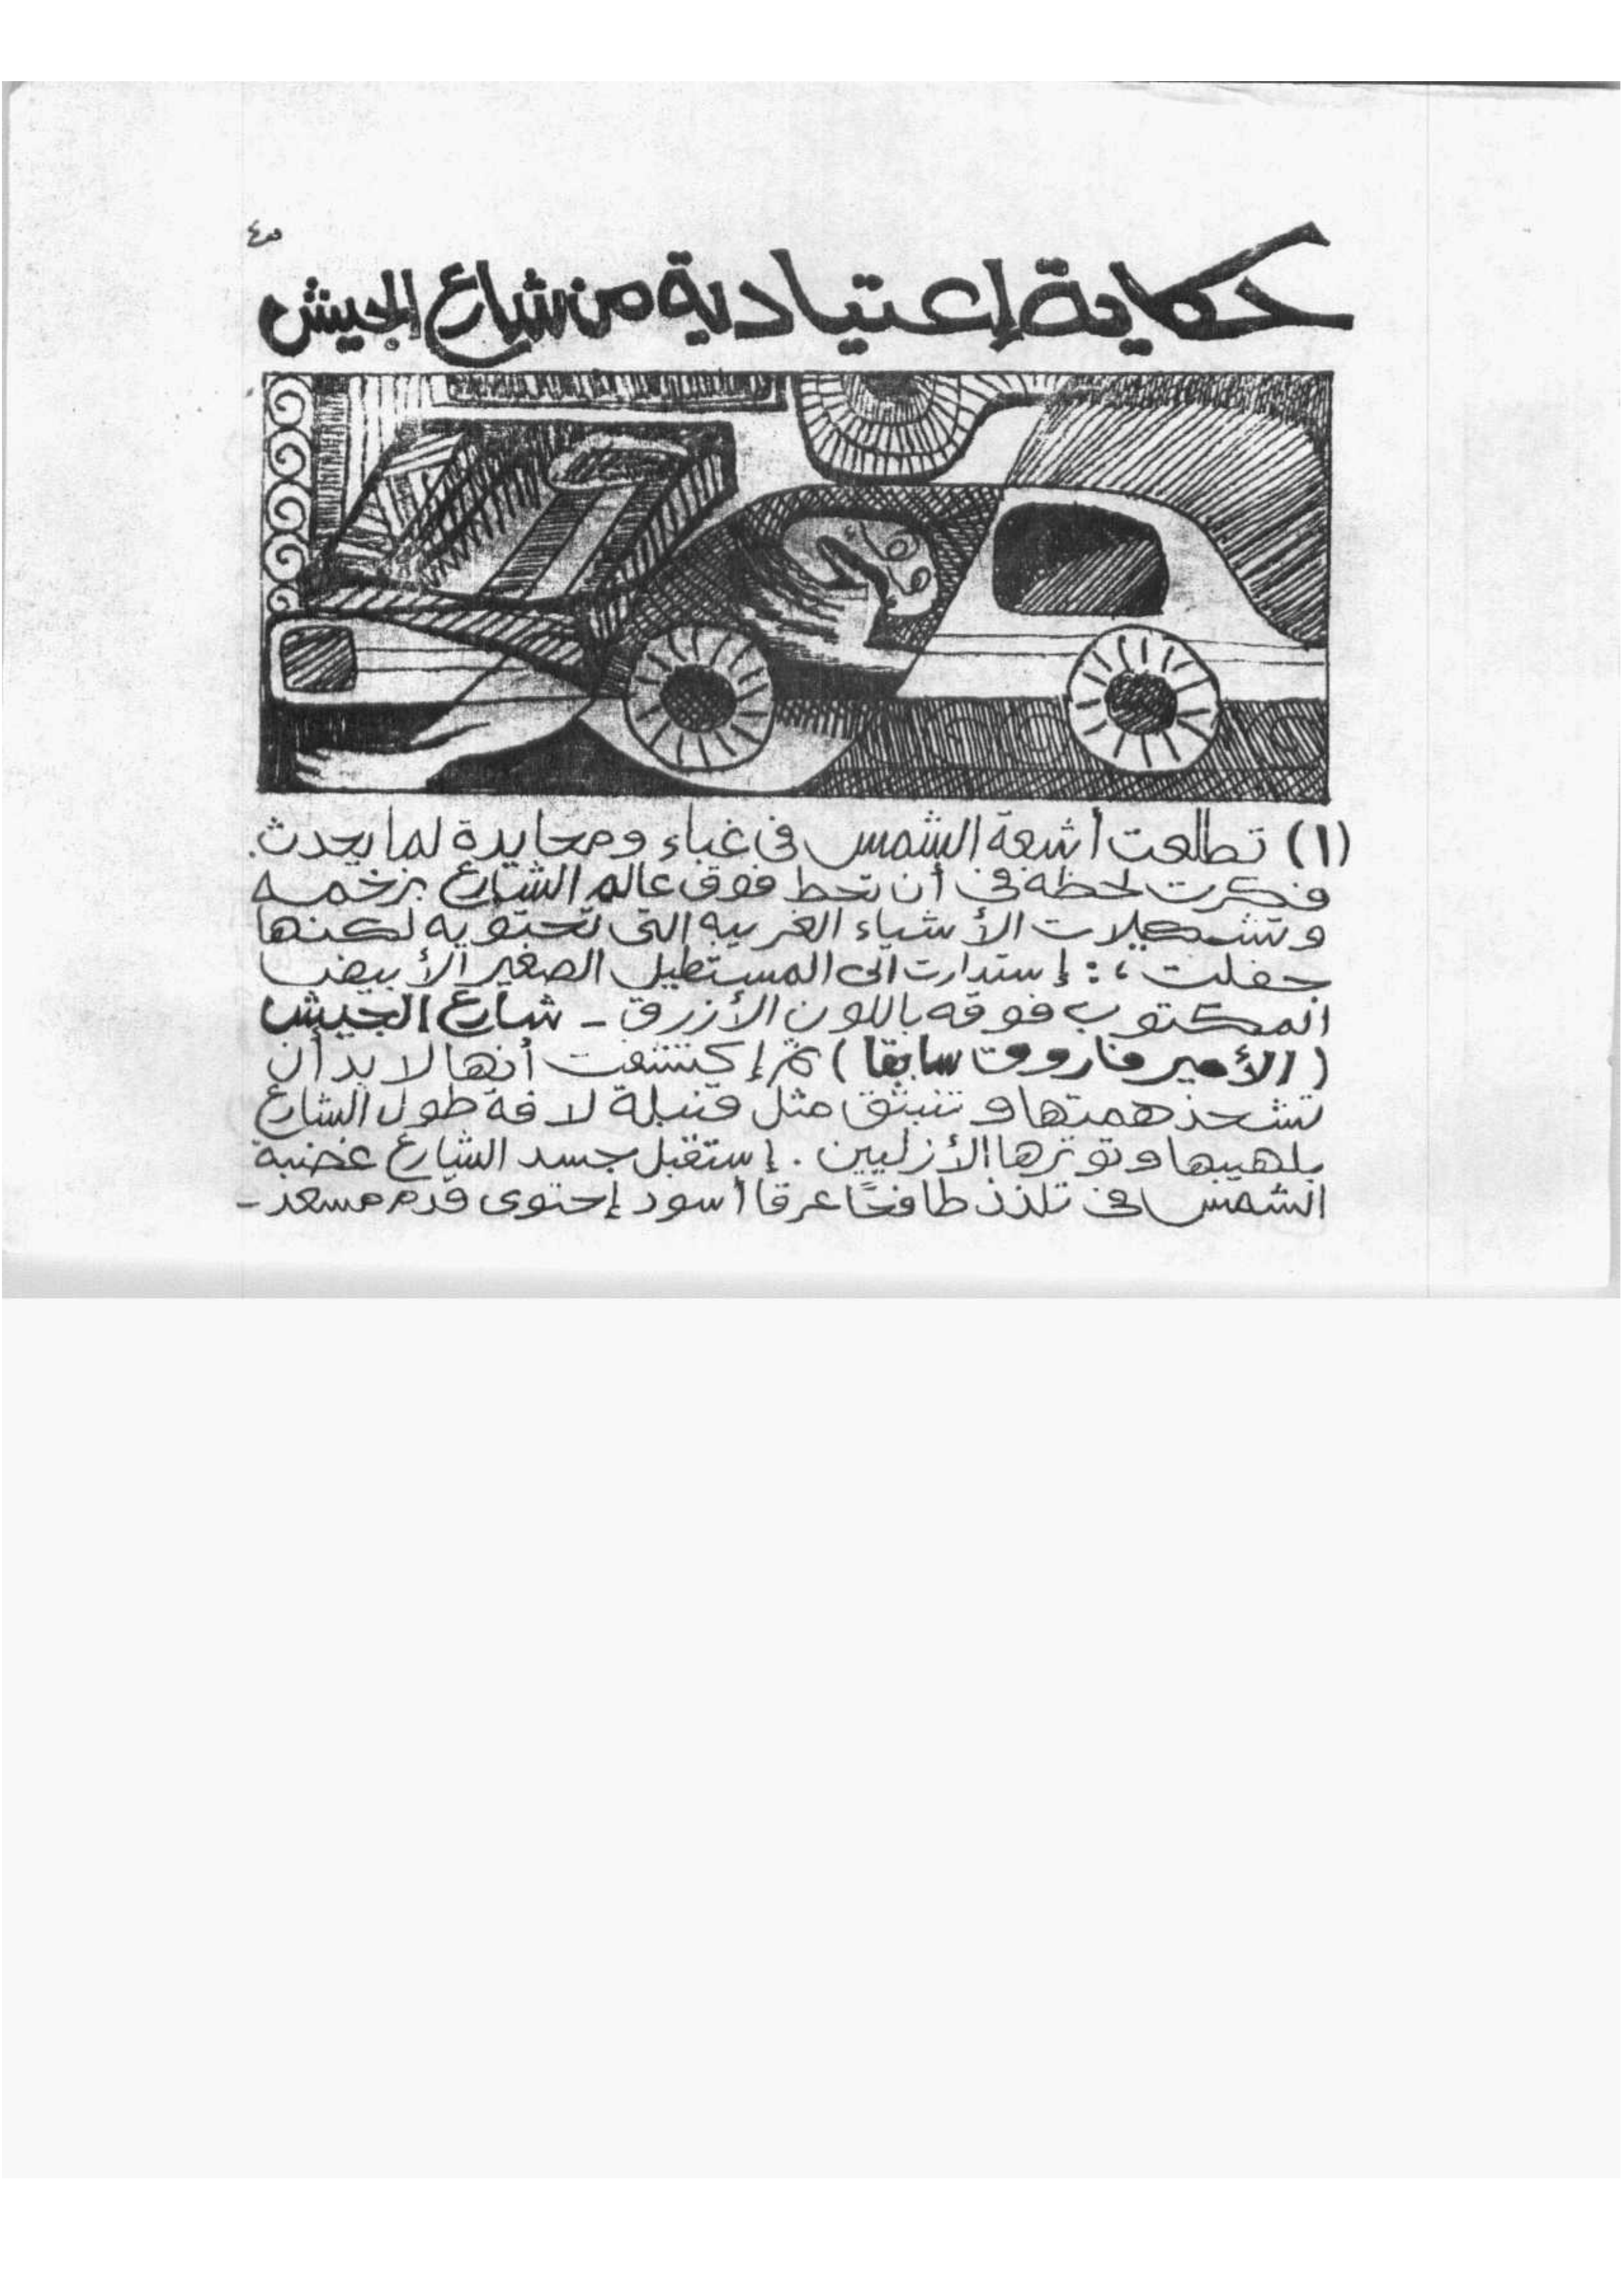 حكاية إعتيادية من شارع الجيش
(١) تطلعت أشعة الشمس فى غباء ومحايدة لما يحدث.
فكرت لحظة فى أن تحط فوق عالم الشارع بزخمه
وتشكيلات الأشياء الغريبه التى تحتويه لكنها
جفلت ، : إستدارت الى المستطيل الصغير الأبيض
المكتوب فوقه باللون الأزرق - شارع الجيش
( الأمير فاروق سابقا ) ثم إكتشفت أنها لا بد أن
تشحذ همتها و تنبثق مثل قنبلة لافة طول الشارع
بلهيبها و توترها الأزليين . إستقبل جسد الشارع غضبة
الشمس فى تلذذ طافحًا عرقا أسود إحتوى قدم مسعد -